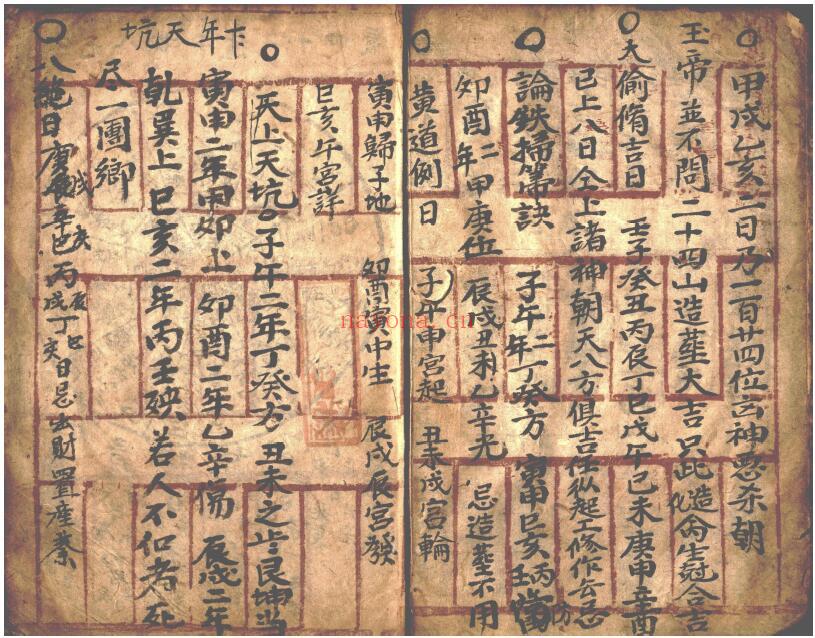 甲戌乙亥二日乃一百廿四位凶神惡杀朝
玉帝並不問二十四山造塟大吉只此造化命生尅合吉
大偷脩吉日 壬子癸丑丙辰丁巳戊午已未庚申辛酉
已上八日仝上諸神朝天八方俱吉任从起工修作云忌
論鉄掃箒訣 子午二年丁癸方 寅申巳亥丙壬當
卯酉二年甲庚位 辰戌丑未乙辛光 忌造塟不用
黄道例日 子午申宮起 丑未戌宮輪
寅申歸子地 卯酉寅中生 辰戌辰宮發
巳亥午宮詳
天上天坑 子午二年丁癸方 丑未之年艮坤当
寅申二年甲卯上 卯酉二年乙辛傷 辰戌二年
乾巽上 巳亥二年丙壬殃 若人不知者死
尽一團鄉
卡年天坑
八絶日庚辰戌辛巳亥丙戌辰丁亥巳日忌出財置產業
nayona.cn